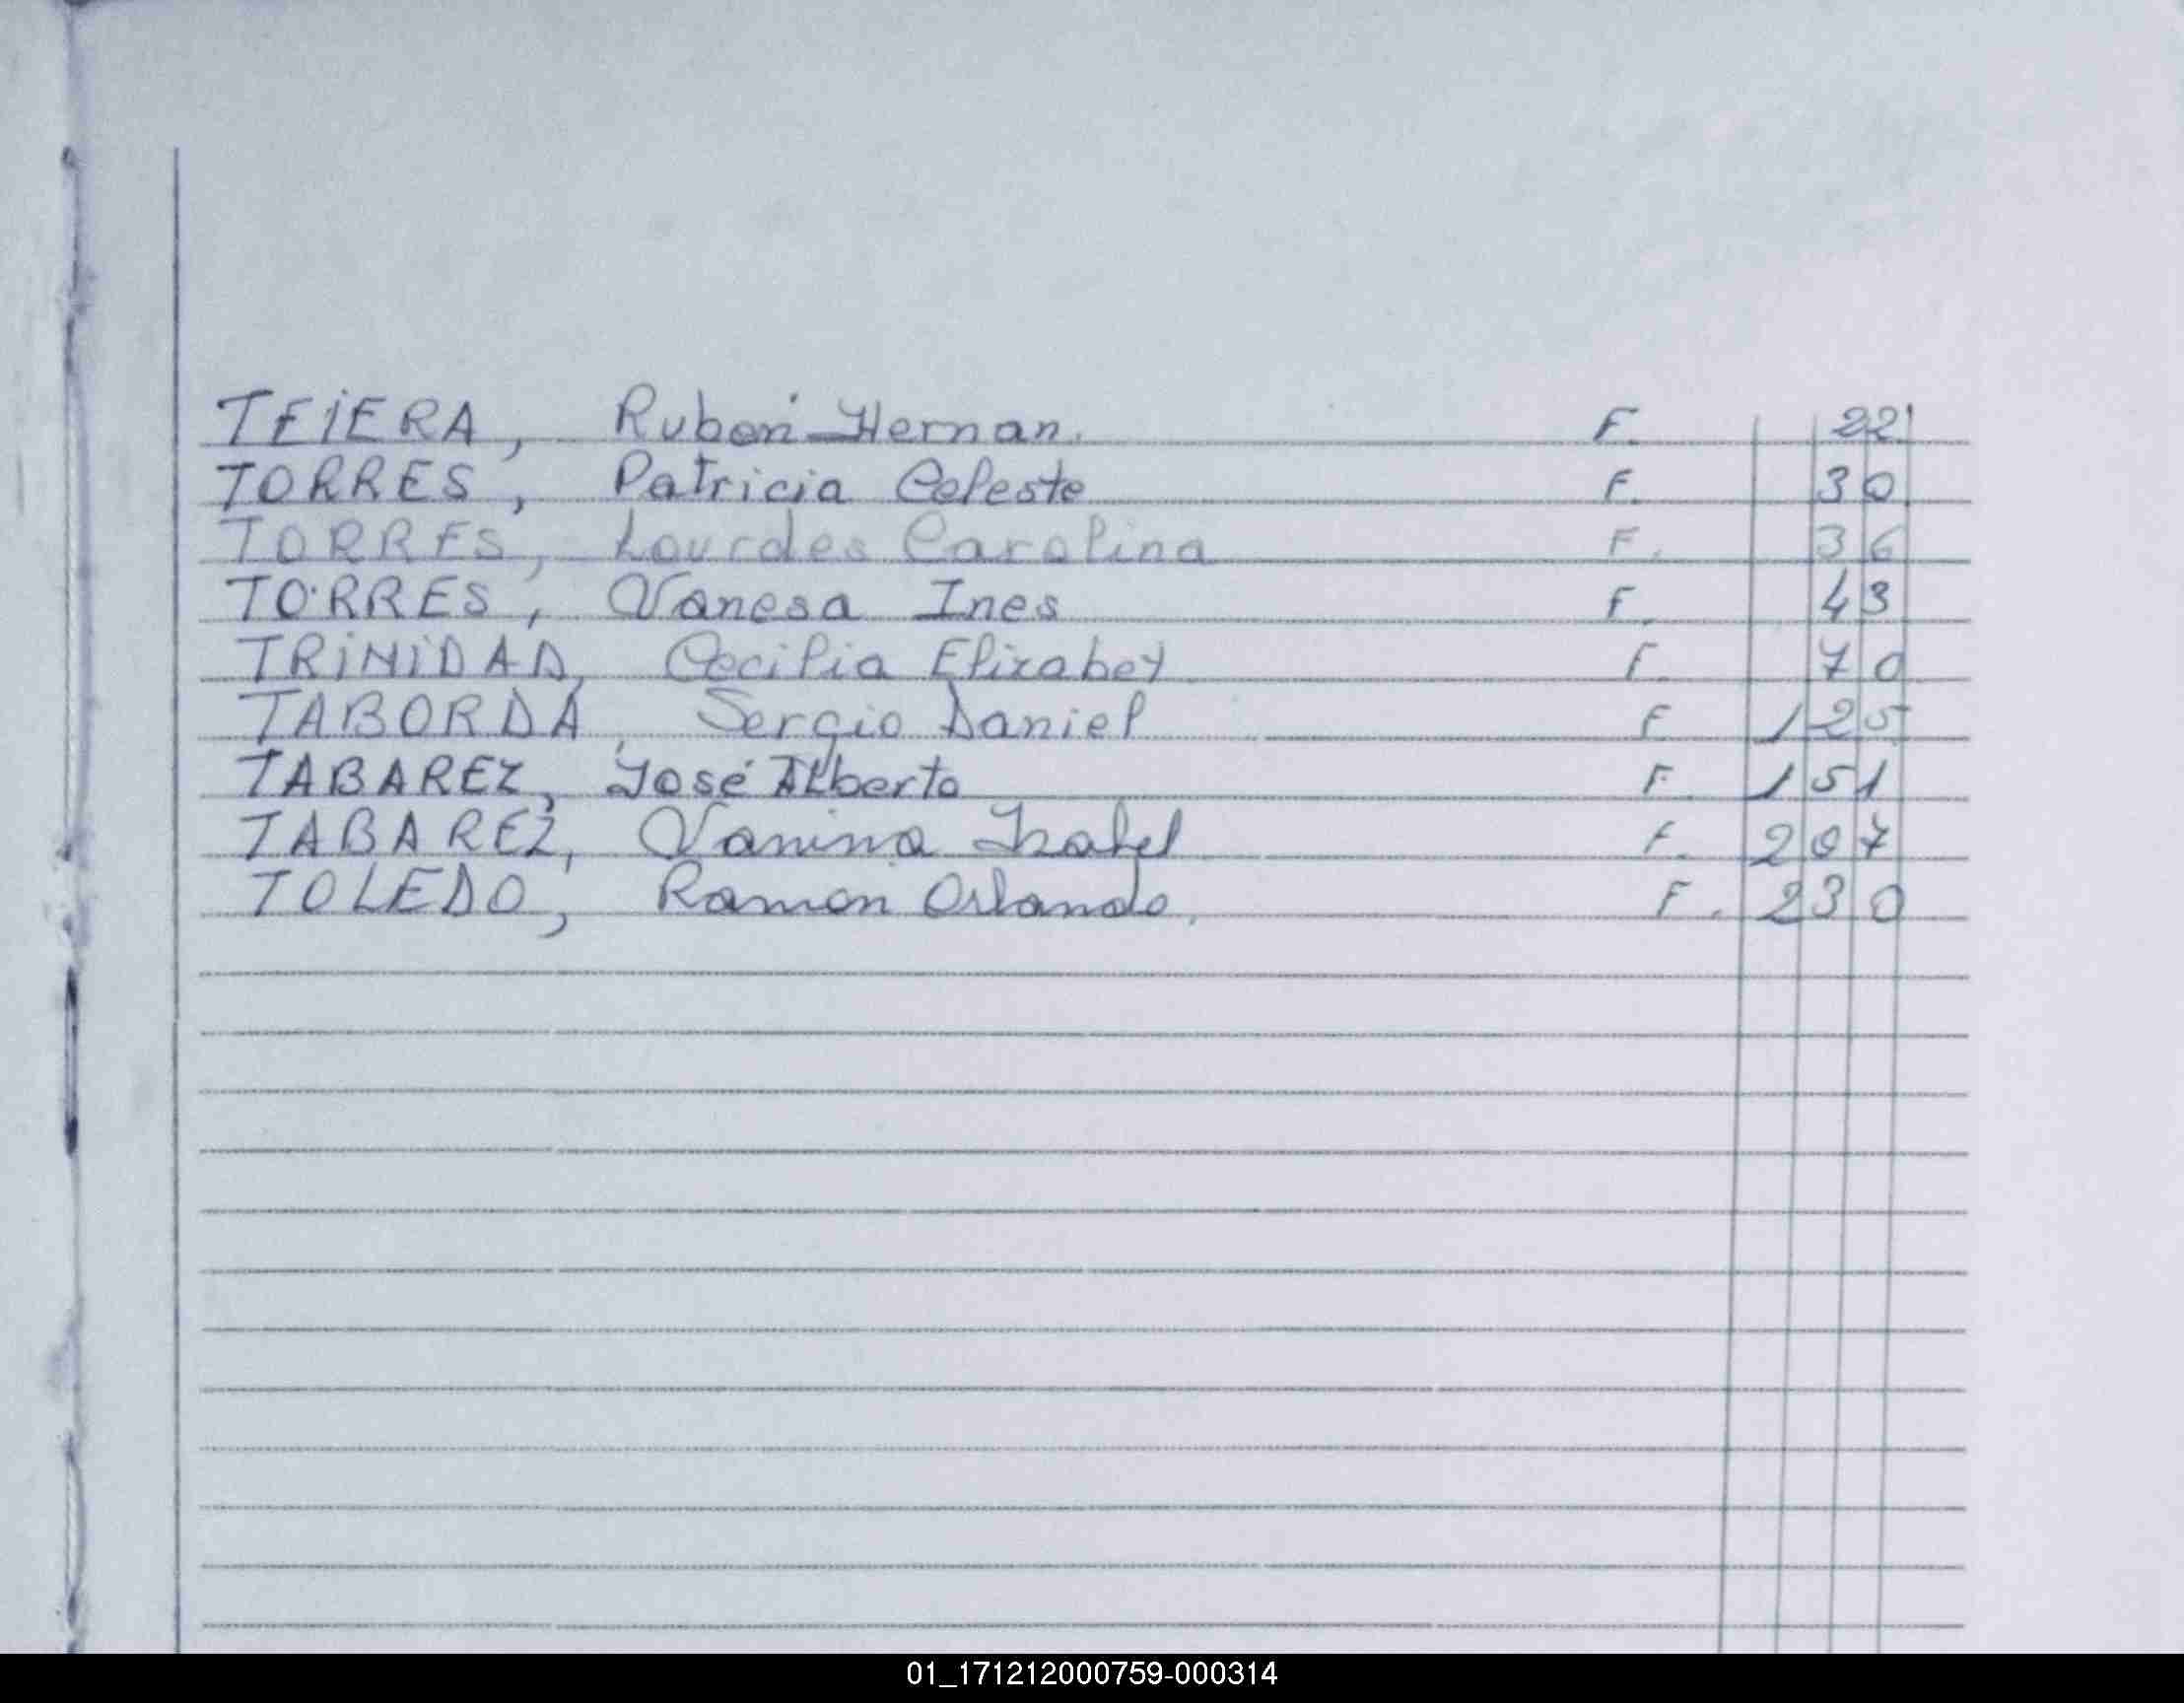 TEIERA, Rubén Hernan. F. 22
TORRES, Patricia Celeste F. 30
TORRES, Lourdes Carolina F. 36
TORRES, Vanesa Ines F. 43
TRINIDAD, Cecilia Elizabet F. 70
TABORDA, Sergio Daniel F 125
TABAREZ, José Alberto F. 151
TABAREZ, Vanina Isabel F. 207
TOLEDO, Ramon Orlando. F. 230
01_171212000759-000314